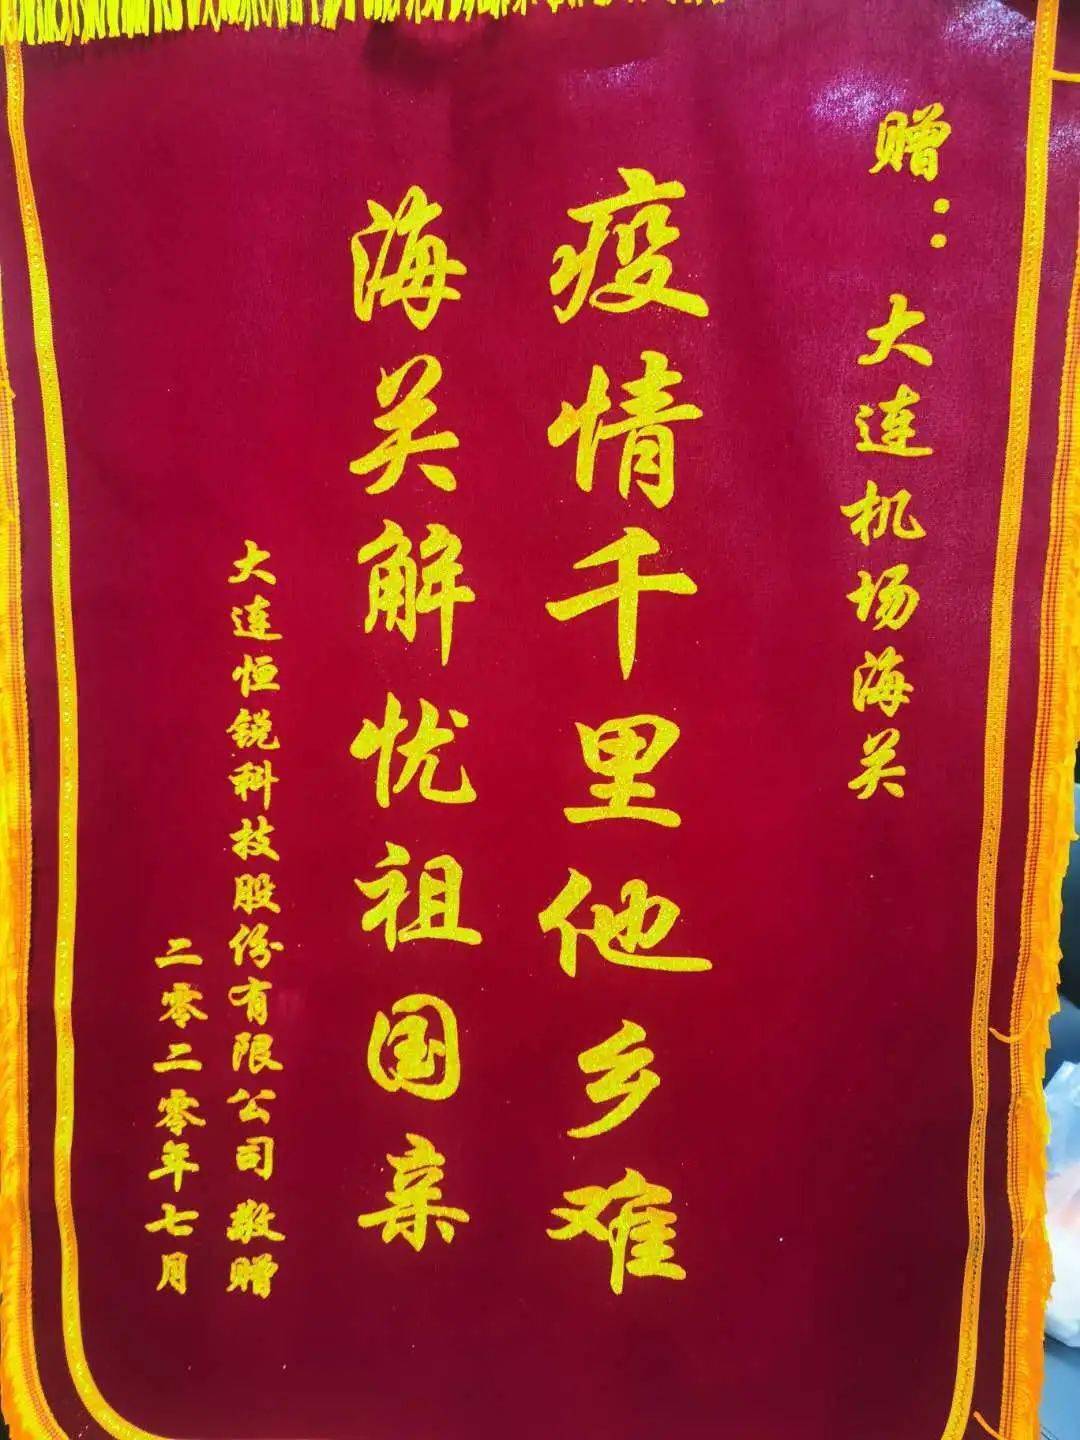 赠：大连机场海关
疫情千里他乡难
海关解忧祖国亲
大连恒锐科技股份有限公司敬赠
二零二零年七月